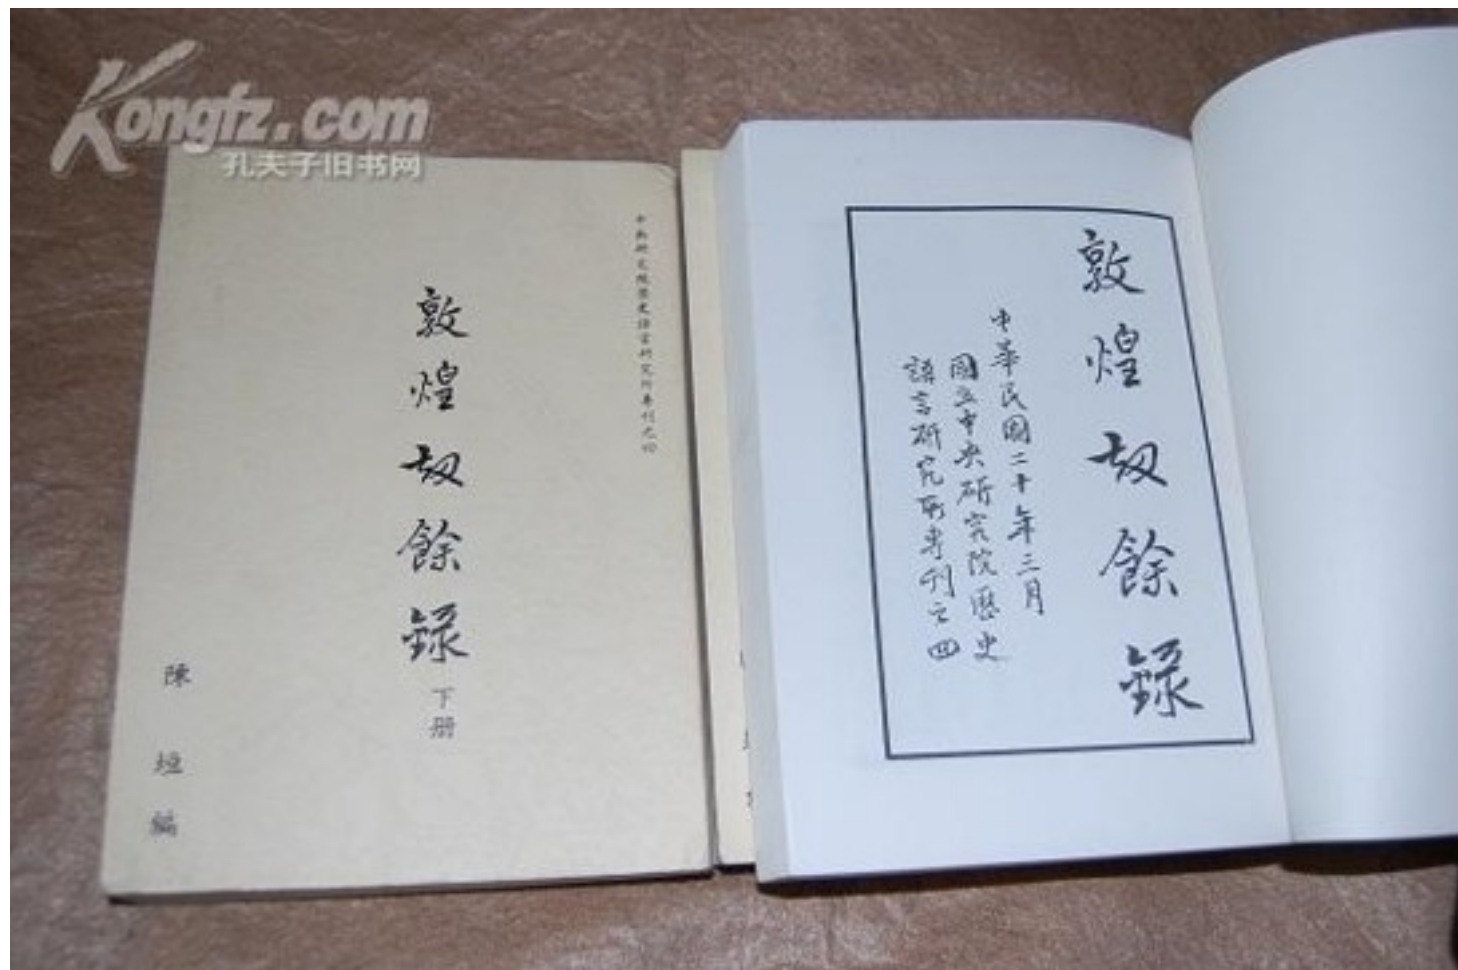 Kongfz.com
孔夫子旧书网
中央研究院歷史語言研究所專刊之四
敦煌劫餘錄
下册
陳垣編
敦煌劫餘錄
中華民國二十年三月
國立中央研究院歷史
語言研究所專刊之四